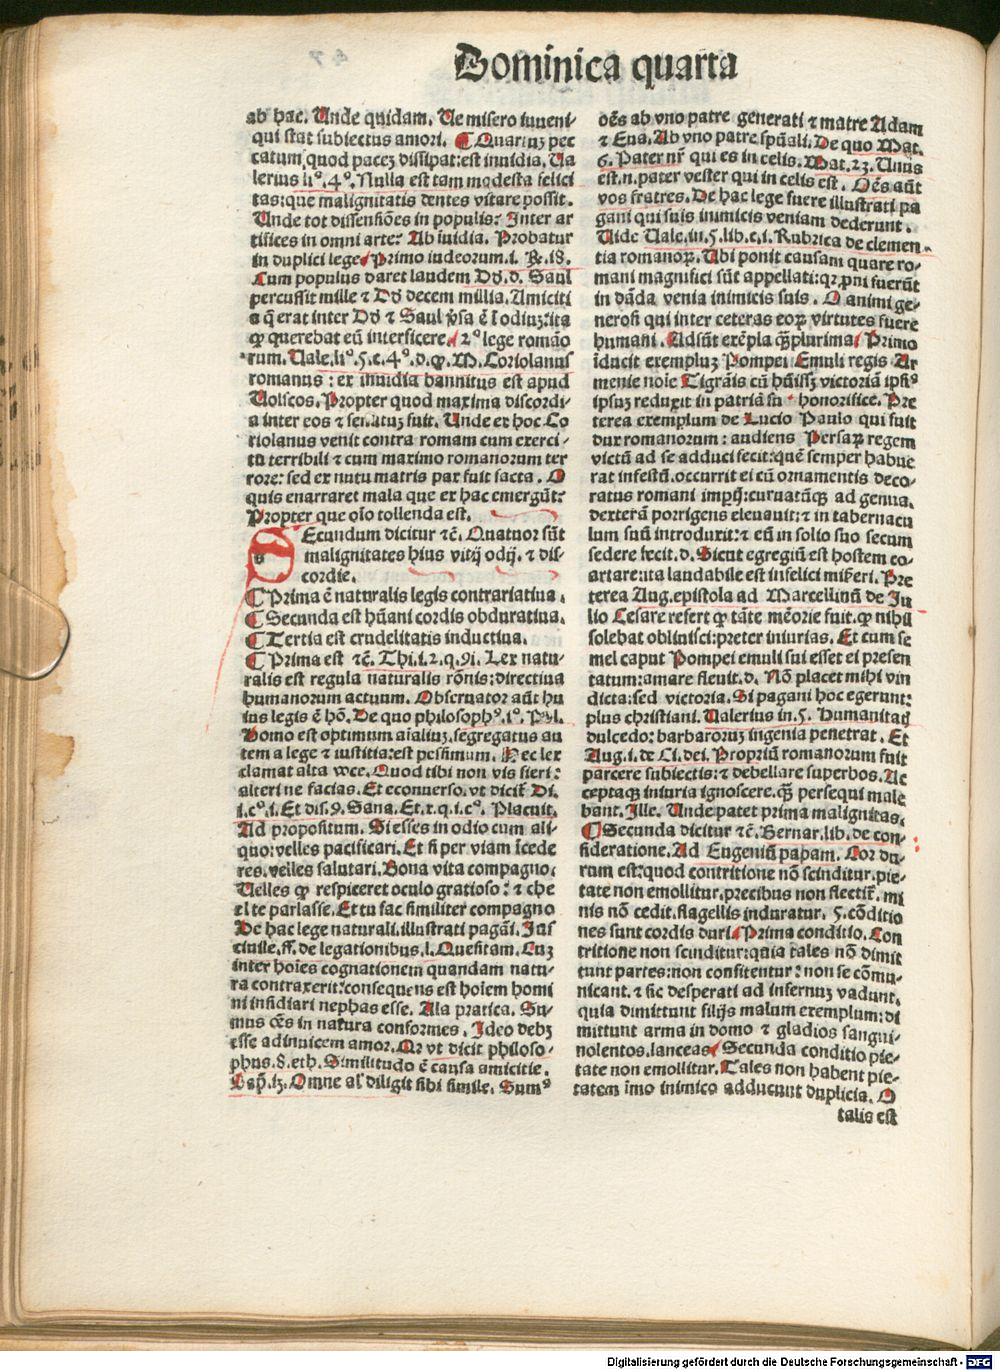 Dominica quarta
ab hac. Unde quidam. Ve misero iuueni-
qui stat subiectus amori. ¶ Quartuꝫ pec
catum quod paceꝫ dissipat: est inuidia. Va
lerius liº.4º. Nulla est tam modesta felici
tas: que malignitatis dentes vitare possit.
Unde tot dissensiões in populis? Inter ar
tifices in omni arte? Ab iuidia. Probatur
in duplici lege. Primo iudeorum.i. R.18.
Cum populus daret laudem Dd̉.d. Saul
percussit mille ⁊ Dd̉ decem millia. Amiciti
a q̄ erat inter Dd̉ ⁊ Saul ꝟsa ē ī odiuꝫ: ita
ꝙ querebat eū interficere. 2º lege romāo
rum. Vale.liº.5.c.4º.d.ꝙ. M. Coriolanus
romanus : ex inuidia bannitus est apud
Volscos. Propter quod maxima discordi-
a inter eos ⁊ senatuꝫ fuit. Unde ex hoc Co
riolanus venit contra romam cum exerci-
tu terribili ⁊ cum maximo romanorum ter
rore: sed ex nutu matris pax fuit facta. O
quis enarraret mala que ex hac emergūt?
Propter que oīo tollenda est.
SEcundum dicitur ⁊c̄. Quatuor sūt
malignitates hius vitij odij. ⁊ dis-
cordie.
¶ Prima ē naturalis legis contrariatiua.
¶ Secunda est hūani cordis obduratiua.
¶ Tertia est crudelitatis inductiua.
¶ Prima est ⁊c̄. Thi.i.2.q.9i. Lex natu-
ralis est regula naturalis rōnis: directiua
humanorum actuum. Obseruator aūt hu
ius legis ē hō. De quo philosophº.iº. Pol.
Homo est optimum aīaliuꝫ. segregatus au
tem a lege ⁊ iustitia: est pessimum. Hec lex
clamat alta voce. Quod tibi non vis fieri:
alteri ne facias. Et econuerso. vt dicit̄ Di.
i.cº.i. Et dis.9. Sana. Et.x.q.i.cº. Placuit.
Ad propositum. Si esses in odio cum ali-
quo: velles pacificari. Et si per viam īcede
res. velles salutari. Bona vita compagno.
Velles ꝙ respiceret oculo gratioso: ⁊ che
el te parlasse. Et tu fac similiter compagno
De hac lege naturali. illustrati pagāi. Jus
ciuile. ff. de legationibus.l. Quesitam. Cuꝫ
inter hoīes cognationem quandam natu-
ra contraxerit: consequens est hoīem homi
ni insidiari nephas esse. Ala pratica. Su-
mus oēs in natura conformes. Ideo debꝫ
esse adinuicem amor. Qr vt dicit philoso-
phus.8.eth. Similitudo ē causa amicitie.
Sap̄.13. Omne aīal diligit sibi simile. Sumº
oēs ab vno patre generati ⁊ matre Adam
⁊ Eua. Ab vno patre spūali. De quo Mat.
6. Pater nr̄ qui es in celis. Mat.23. Unus
est.n. pater vester qui in celis est. Oēs aūt
vos fratres. De hac lege fuere illustrati pa
gani qui suis inimicis veniam dederunt.
Vide Vale.in.5.lib.c.i. Rubrica de clemen-
tia romanoꝝ. Ubi ponit causam quare ro-
mani magnifici sūt appellati: qꝛ ꝓni fuerūt
in dāda venia inimicis suis. O animi ge-
nerosi qui inter ceteras eoꝝ virtutes fuere
humani. Adsūt exēpla q̄ꝫplurima. Primo
īducit exempluꝫ Pompei Emuli regis Ar
menie noīe Tigrāis cū hūissꝫ victoriā ipsiº
ipsuꝫ reduxit in patriā suā honorifice. Pre
terea exemplum de Lucio Paulo qui fuit
dux romanorum : audiens Persaꝝ regem
victū ad se adduci fecit: quē semper habue
rat infestū. occurrit ei cū ornamentis deco-
ratus romani imperij: curuatūꝗꝫ ad genua.
dexterā porrigens eleuauit: ⁊ in tabernacu
lum suū introduxit: ⁊ eū in solio suo secum
sedere fecit.d. Sicut egregiū est hostem co-
artare: ita laudabile est infelici miẜeri. Pre
terea Aug. epistola ad Marcellinū de Ju
lio Cesare refert ꝙ tāte mēorie fuit. ꝙ nihil
solebat obliuisci: preter iniurias. Et cum se
mel caput Pompei emuli sui esset ei presen
tatum: amare fleuit.d. Nō placet mihi vin
dicta: sed victoria. Si pagani hoc egerunt:
plus christiani. Valerius in.5. Humanitad
dulcedo: barbaroruꝫ ingenia penetrat. Et
Aug.i.de Ci.dei. Propriū romanorum fuit
parcere subiectis: ⁊ debellare superbos. Ac
ceptaꝗꝫ iniuria ignoscere. q̄ꝫ persequi male
bant. Ille. Unde patet prima malignitas.
¶ Secunda dicitur ⁊c̄. Bernar.lib. de con-
sideratione. Ad Eugeniū papam. Cor du-
rum est: quod contritione nō scinditur. pie-
tate non emollitur. precibus non flectit̄. mi
nis nō cedit. flagellis induratur. 5. cōditio
nes sunt cordis duri. Prima conditio. Con
tritione non scinditur: quia tales nō dimit
tunt partes: non confitentur: non se cōmu-
nicant. ⁊ sic desperati ad infernuꝫ vadunt.
quia dimittunt filijs malum exemplum: di
mittunt arma in domo ⁊ gladios sangui-
nolentos. lanceas. Secunda conditio pie-
tate non emollitur. Tales non habent pie-
tatem īmo inimico adducunt duplicia. O
talis est
Digitalisierung gefördert durch die Deutsche Forschungsgemeinschaft - DFG